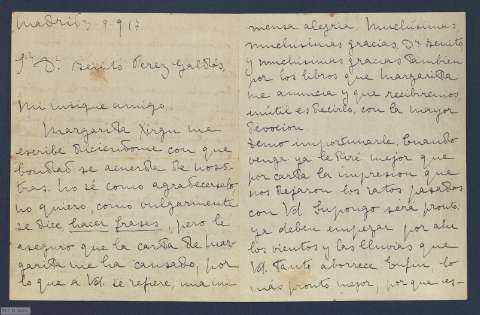 Madrid 3-9-917
Sr. Dn. Benito Perez-Galdós
Mi insigne amigo.
Margarita Xirgu me
escribe diciendome con que
bondad se acuerda de noso-
tras. No sé como agradecerselo,
no quiero, como vulgarmente
se dice hacer frases, pero le
aseguro que la carta de Mar-
garita me ha causado, por
lo que a Vd. se refiere, una in-
mensa alegria. Muchisimas,
muchisimas gracias, Dn. Benito,
y muchisimas gracias tambien
por los libros que Margarita
me anuncia y que recibiremos
inútil es decirlo, con la mayor
devocion.
Temo importunarle. Cuando
venga ya le diré mejor que
por carta la impresion que
nos dejaron los ratos pasados
con Vd. Supongo será pronto.
ya deben empezar por ahi
los vientos y las lluvias que
Vd. tanto aborrece. Enfin lo
más pronto mejor, porque es-